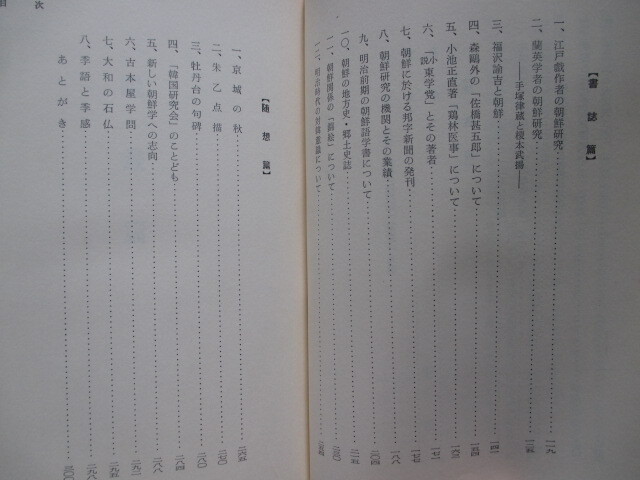 【書誌篇】
一、江戸戯作者の朝鮮研究……一一九
二、蘭英学者の朝鮮研究……一三五
――手塚律蔵と榎本武揚――
三、福沢諭吉と朝鮮……一四一
四、森鷗外の「佐橋甚五郎」について……一五四
五、小池正直著「鶏林医事」について……一六三
六、「小説東学党」とその著者……一七一
七、朝鮮に於ける邦字新聞の発刊……一七七
八、朝鮮研究の機関とその業績……一八八
九、明治前期の朝鮮語学書について……二〇四
一〇、朝鮮の地方史・郷土史誌……二一五
一一、朝鮮関係の「錦絵」について……二三〇
一二、明治時代の対韓意識について
【随想篇】
一、京城の秋……二六五
二、朱乙点描……二七〇
三、牡丹台の句碑……二八〇
四、「韓国研究会」のことども……二八四
五、新しい朝鮮学への志向……二八八
六、古本屋学問……二九一
七、大和の石仏……二九五
八、季語と季感……二九八
あとがき……三〇〇
目次